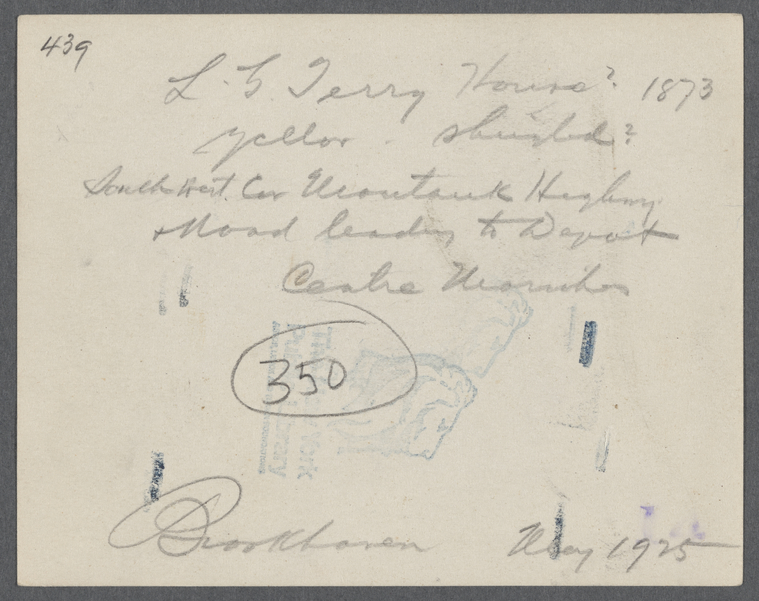 439
L. G. Terry House? 1873
yellow - shingled?
South West. Cor Montauk Highway
+ Road leading to Depot
Centre Moriches
350
The New York
Public Library
Brookhaven May 1925